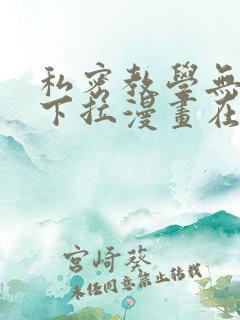 私密教學無
下拉漫畫在
宮崎葵
未经同意禁止转载